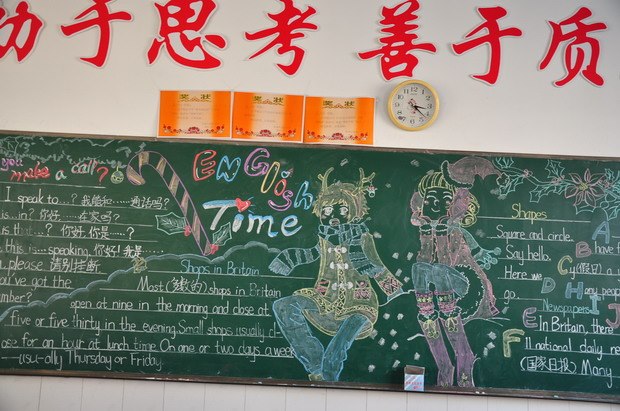 动手思考 善于质
奖状 奖状 奖状
you make a call?
I speak to…? 我能和……通话吗?
is…in? 你好……在家吗?
is th t…? 你好,你是……?
this is……speaking. 你好!我是
n, please 请别挂断
ou've got the
mber?
ENGlish Time
Shops in Britain
Most (绝大多) shops in Britain
open at nine in the morning and close at
five or five thirty in the evening. Small shops usually cl
ose for an hour at lunch time. On one or two days a week
——usually Thursday or Friday.
Shapes
Square and circle.
Say hello.
Here we
go
A B C D H I E J F
have f
y (假日) a
any people
Newspapers
In Britain, there
11 national daily ne
(国家日报) Many